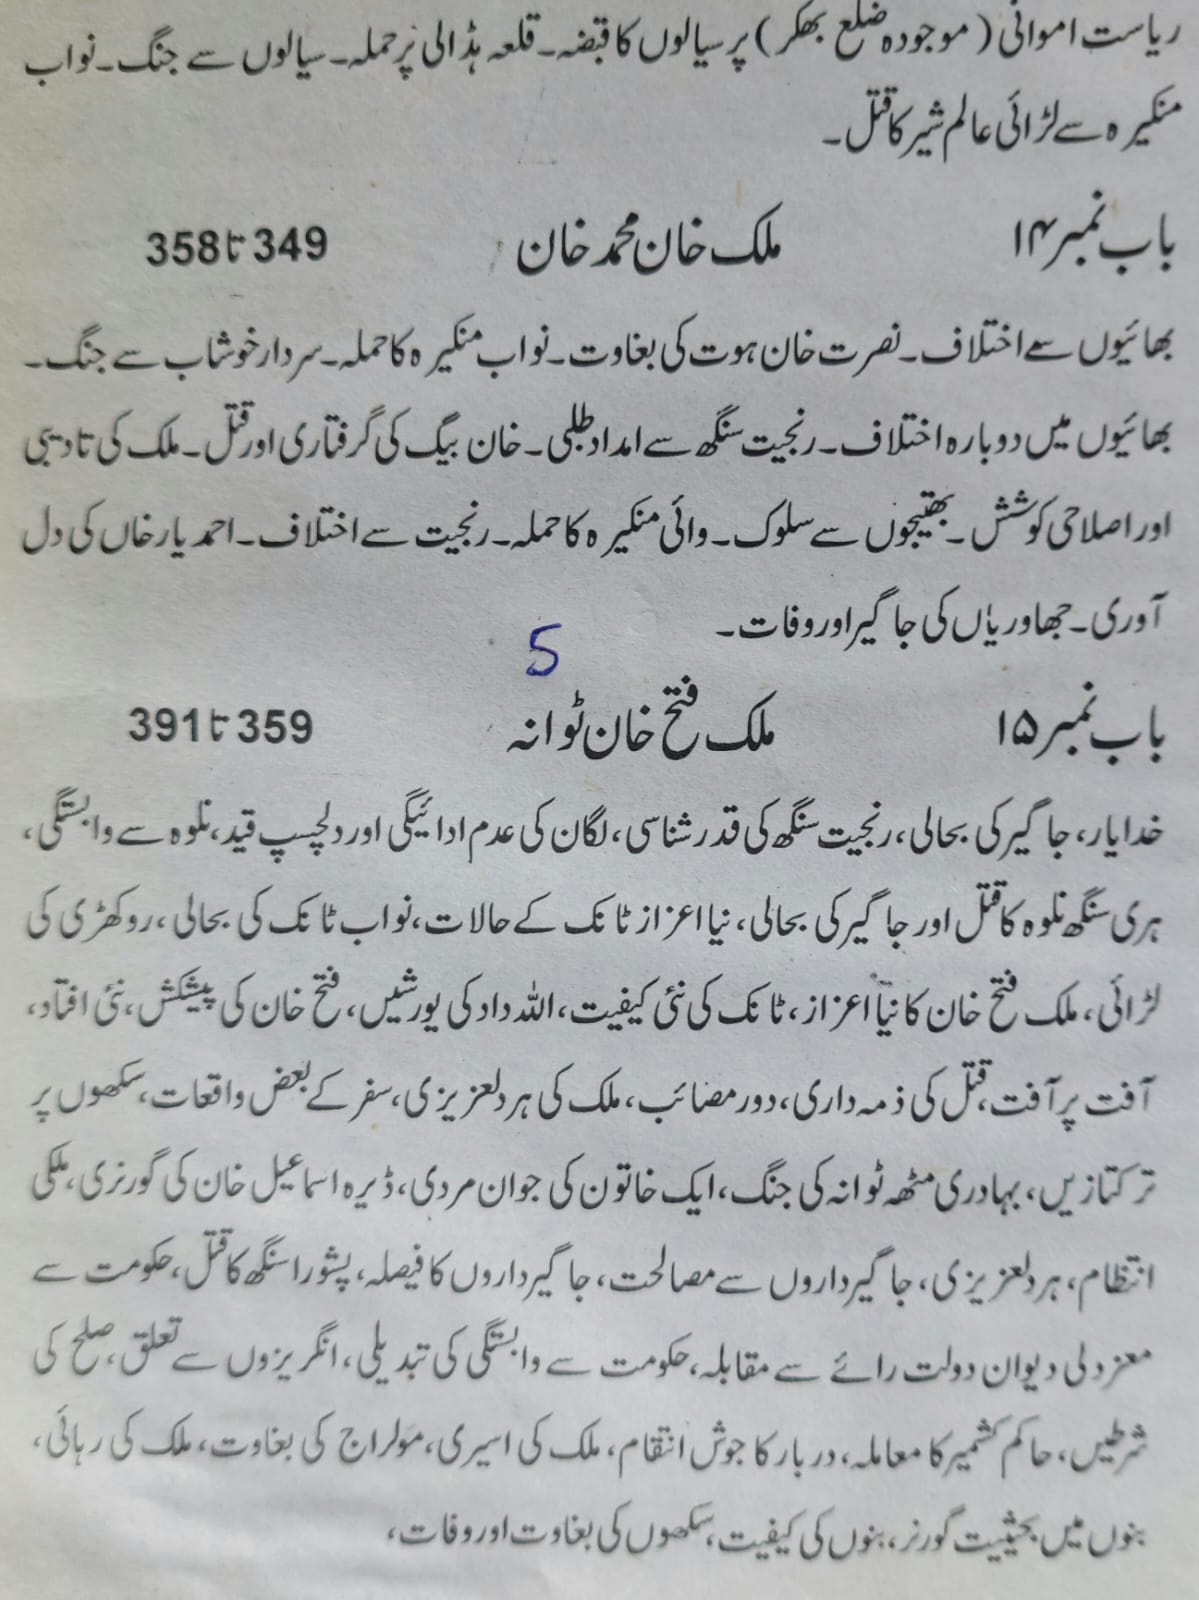 ریاست اموانی (موجودہ ضلع بھکر) پر سیالوں کا قبضہ۔ قلعہ ہڈالی پر حملہ۔ سیالوں سے جنگ۔ نواب
منکیرہ سے لڑائی عالم شیر کا قتل۔
باب نمبر ۱۴ ملک خان محمد خان 349 تا 358
بھائیوں سے اختلاف۔ نصرت خان ہوت کی بغاوت۔ نواب منکیرہ کا حملہ۔ سردار خوشاب سے جنگ۔
بھائیوں میں دوبارہ اختلاف۔ رنجیت سنگھ سے امداد طلبی۔ خان بیگ کی گرفتاری اور قتل۔ ملک کی تادیبی
اور اصلاحی کوشش۔ بھتیجوں سے سلوک۔ وائی منکیرہ کا حملہ۔ رنجیت سے اختلاف۔ احمد یار خاں کی دل
آوری۔ جھاوریاں کی جاگیر اور وفات۔
5
باب نمبر ۱۵ ملک فتح خان ٹوانہ 359 تا 391
خدا یار، جاگیر کی بحالی، رنجیت سنگھ کی قدر شناسی، لگان کی عدم ادائیگی اور دلچسپ قید، نلوہ سے وابستگی،
ہری سنگھ نلوہ کا قتل اور جاگیر کی بحالی، نیا اعزاز ٹانک کے حالات، نواب ٹانک کی بحالی، روکھڑی کی
لڑائی، ملک فتح خان کا نیا اعزاز، ٹانک کی نئی کیفیت، اللہ داد کی یورشیں، فتح خان کی پیشکش، نئی افتاد،
آفت پر آفت، قتل کی ذمہ داری، دور مصائب، ملک کی ہردلعزیزی، سفر کے بعض واقعات، سکھوں پر
ترکتازیں، بہادری مٹھہ ٹوانہ کی جنگ، ایک خاتون کی جوان مردی، ڈیرہ اسماعیل خان کی گورنری، ملکی
انتظام، ہردلعزیزی، جاگیرداروں سے مصالحت، جاگیرداروں کا فیصلہ، پشورا سنگھ کا قتل، حکومت سے
معزدلی دیوان دولت رائے سے مقابلہ، حکومت سے وابستگی کی تبدیلی، انگریزوں سے تعلق، صلح کی
شرطیں، حاکم کشمیر کا معاملہ، دربار کا جوش انتقام، ملک کی اسیری، مولراج کی بغاوت، ملک کی رہائی،
بنوں میں بحیثیت گورنر، بنوں کی کیفیت، سکھوں کی بغاوت اور وفات،